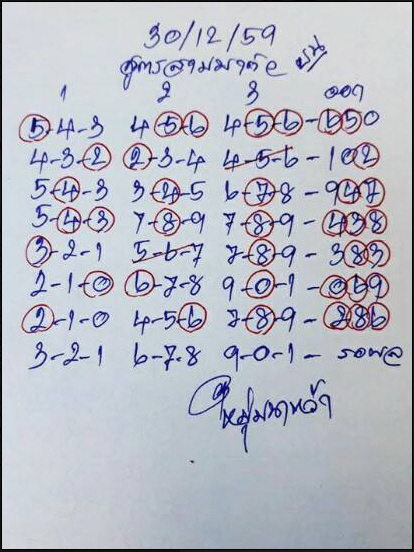 30/12/59
สูตรสามมาตัด บน
1 2 3 ออก
5-4-3 4-5-6 4-5-6-650
4-3-2 2-3-4 4-5-6-102
5-4-3 3-4-5 6-7-8-947
5-4-3 7-8-9 7-8-9-438
3-2-1 5-6-7 7-8-9-383
2-1-0 6-7-8 9-0-1-069
2-1-0 4-5-6 7-8-9-286
3-2-1 6-7-8 9-0-1-รอผล